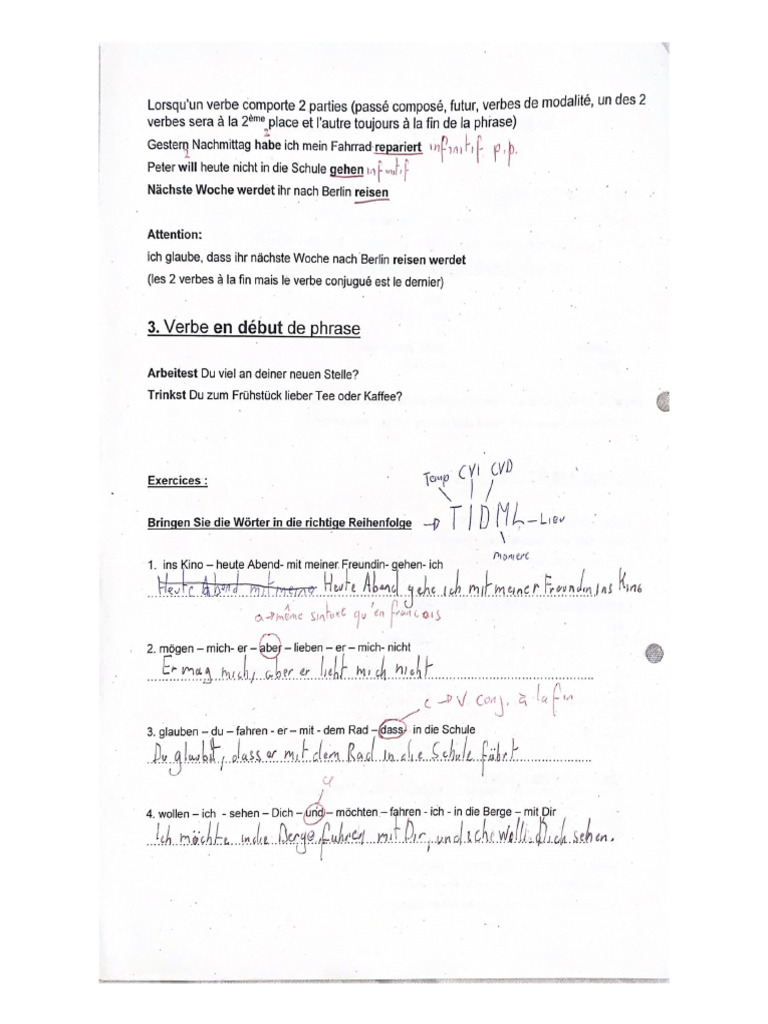 Lorsqu'un verbe comporte 2 parties (passé composé, futur, verbes de modalité, un des 2
verbes sera à la 2ème place et l'autre toujours à la fin de la phrase)
2
Gestern Nachmittag habe ich mein Fahrrad repariert infinitif p.p.
2
Peter will heute nicht in die Schule gehen infinitif
Nächste Woche werdet ihr nach Berlin reisen
Attention:
ich glaube, dass ihr nächste Woche nach Berlin reisen werdet
(les 2 verbes à la fin mais le verbe conjugué est le dernier)
3. Verbe en début de phrase
Arbeitest Du viel an deiner neuen Stelle?
Trinkst Du zum Frühstück lieber Tee oder Kaffee?
Temp CVI CVD
Exercices :
Bringen Sie die Wörter in die richtige Reihenfolge → TIDML - Lieu
Maniere
1. ins Kino – heute Abend- mit meiner Freundin- gehen- ich
Heute Abend mit meine Heute Abend gehe ich mit meiner Freundin ins Kino
a → même sintaxe qu'en francais
2. mögen – mich- er – aber – lieben – er – mich- nicht
Er mag mich, aber er liebt mich nicht
c → V conj. à la fin
3. glauben – du – fahren - er – mit - dem Rad – dass- in die Schule
Du glaubst, dass er mit dem Rad in die Schule fährt
4. wollen – ich - sehen – Dich – und – möchten – fahren - ich - in die Berge – mit Dir
Ich möchte in die Berge fahren mit Dir, und iche will Dich sehen.